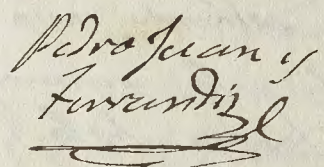 Pedro Juan y
Ferrandiz